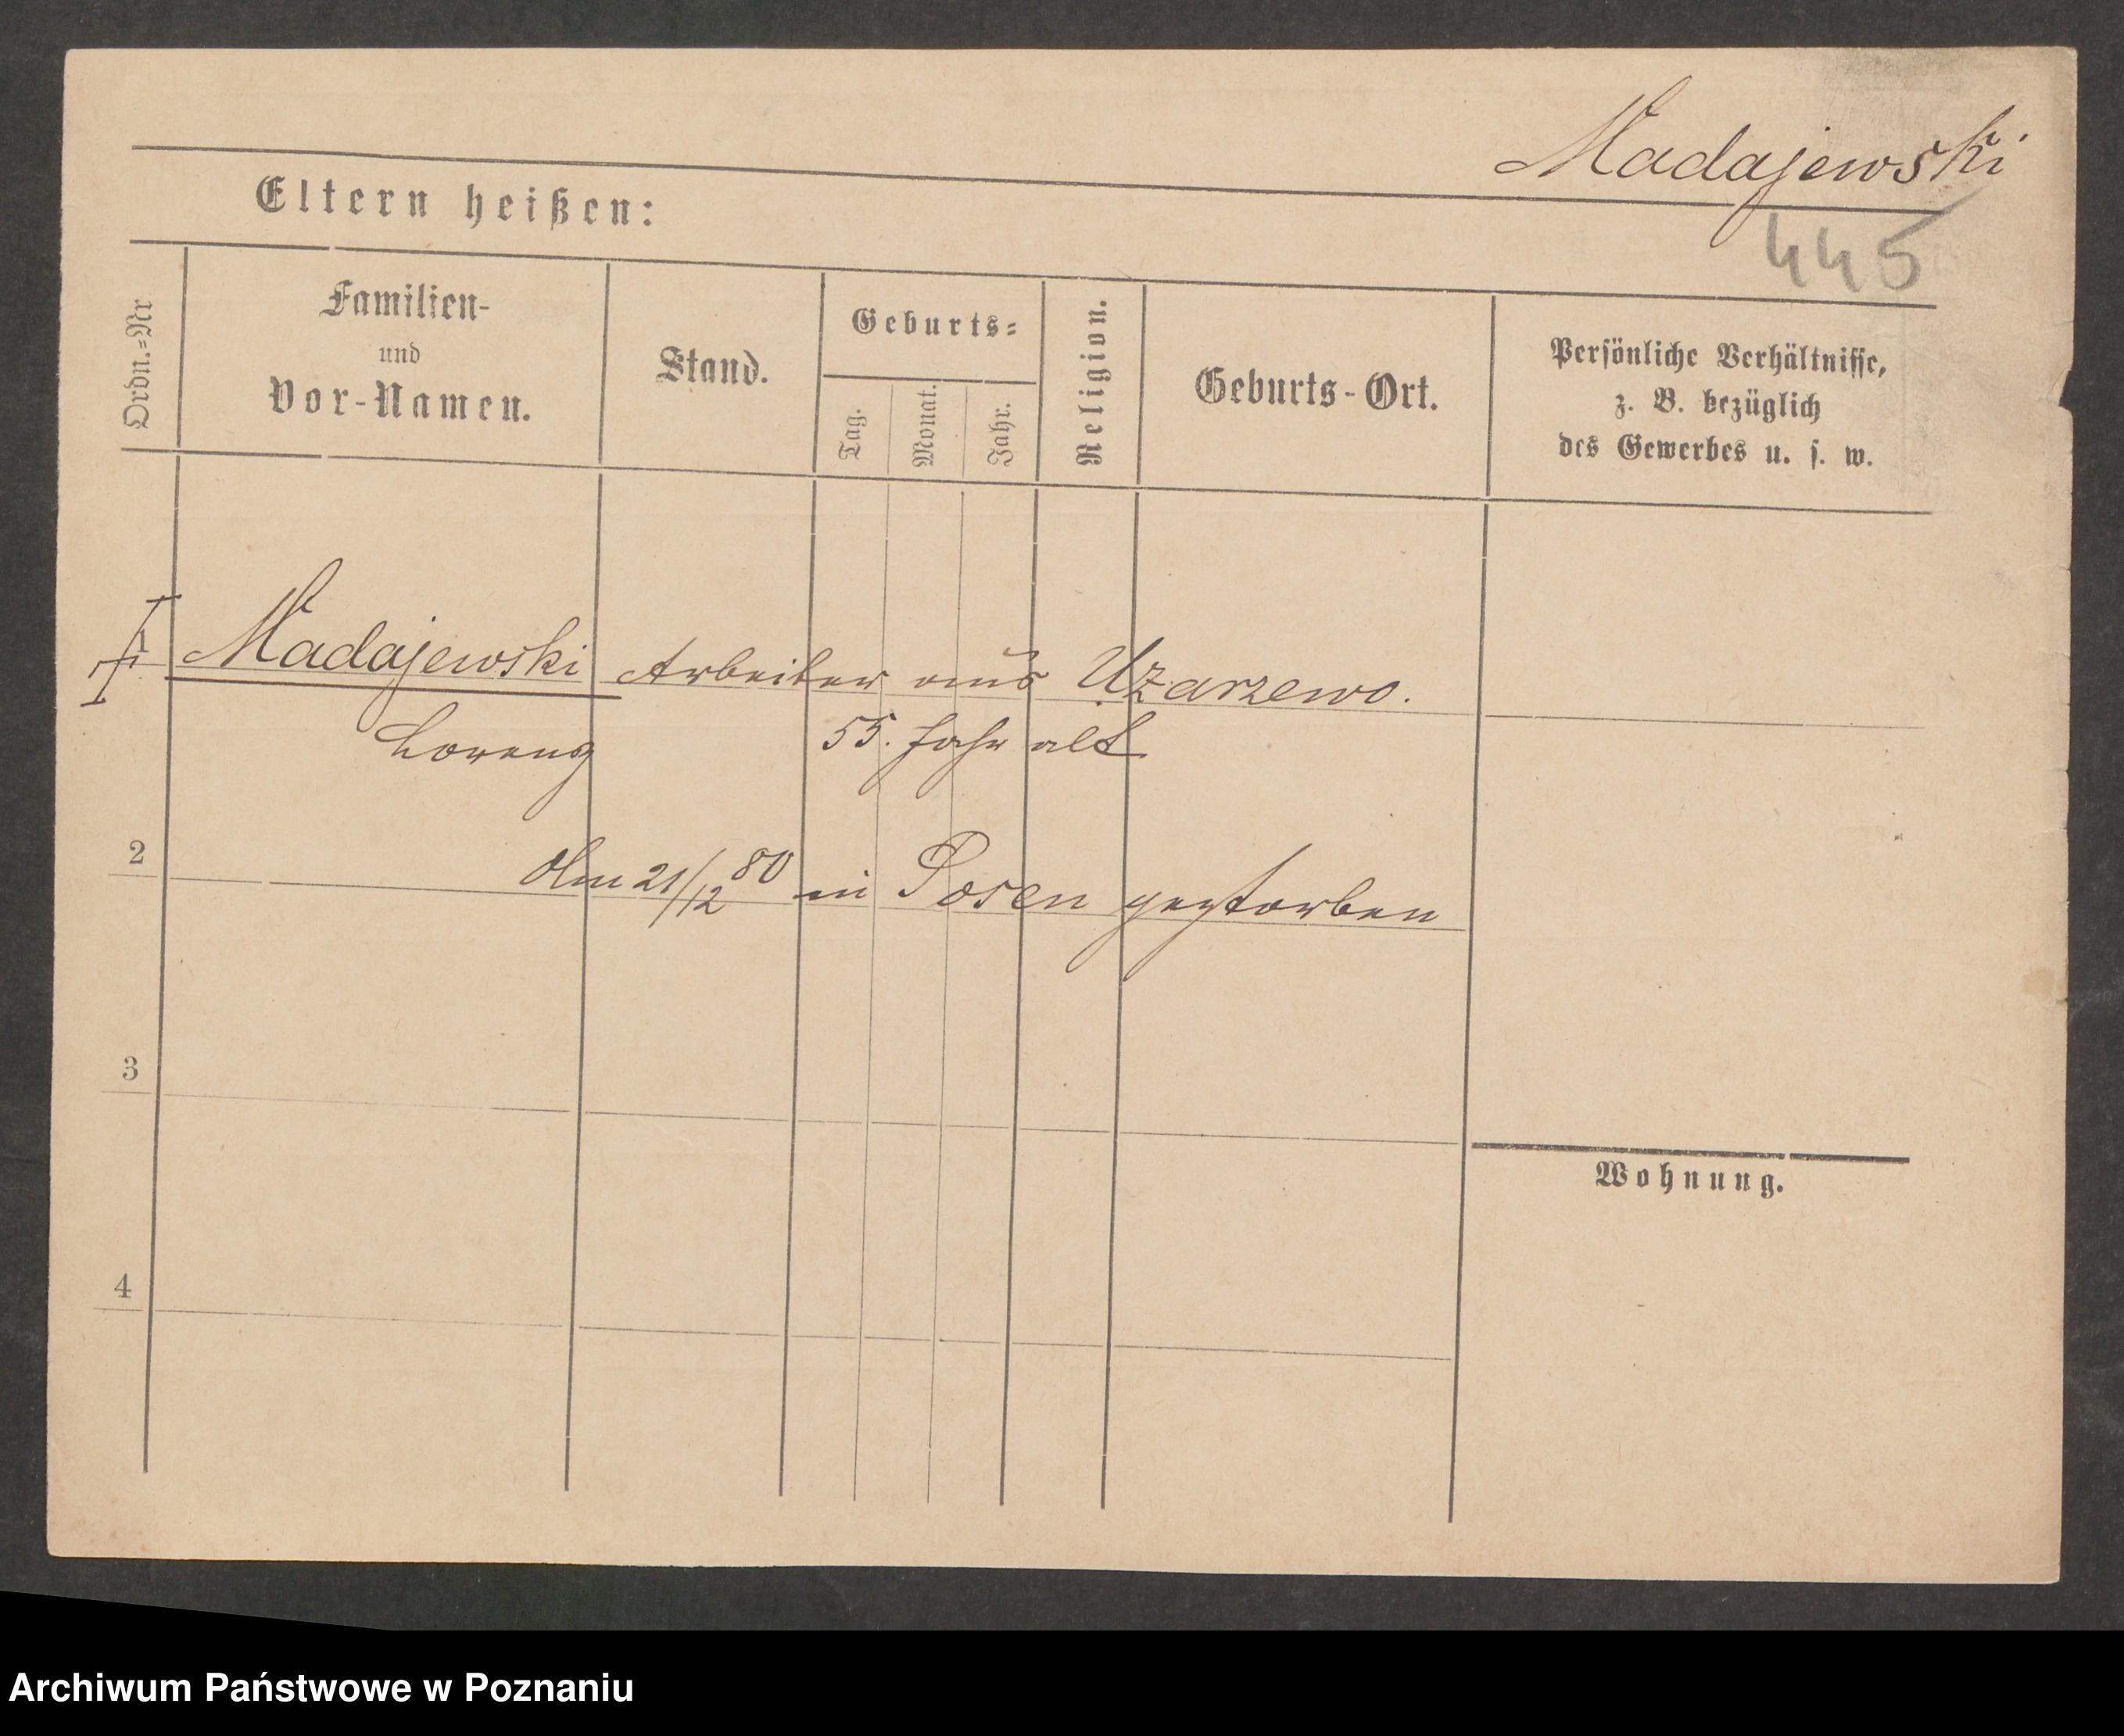 Madajewski
Eltern heißen:
445
Ordn.=Nr.
Familien-
und
Vor-Namen.
Stand.
Geburts=
Tag.
Monat.
Jahr.
Religion.
Geburts-Ort.
Persönliche Verhältnisse,
z. B. bezüglich
des Gewerbes u. s. w.
1 Madajewski Arbeiter aus Użarzewo.
Lorenz 55. Jahr alt
2
Am 21/12 80 in Posen gestorben
3
Wohnung.
4
Archiwum Państwowe w Poznaniu